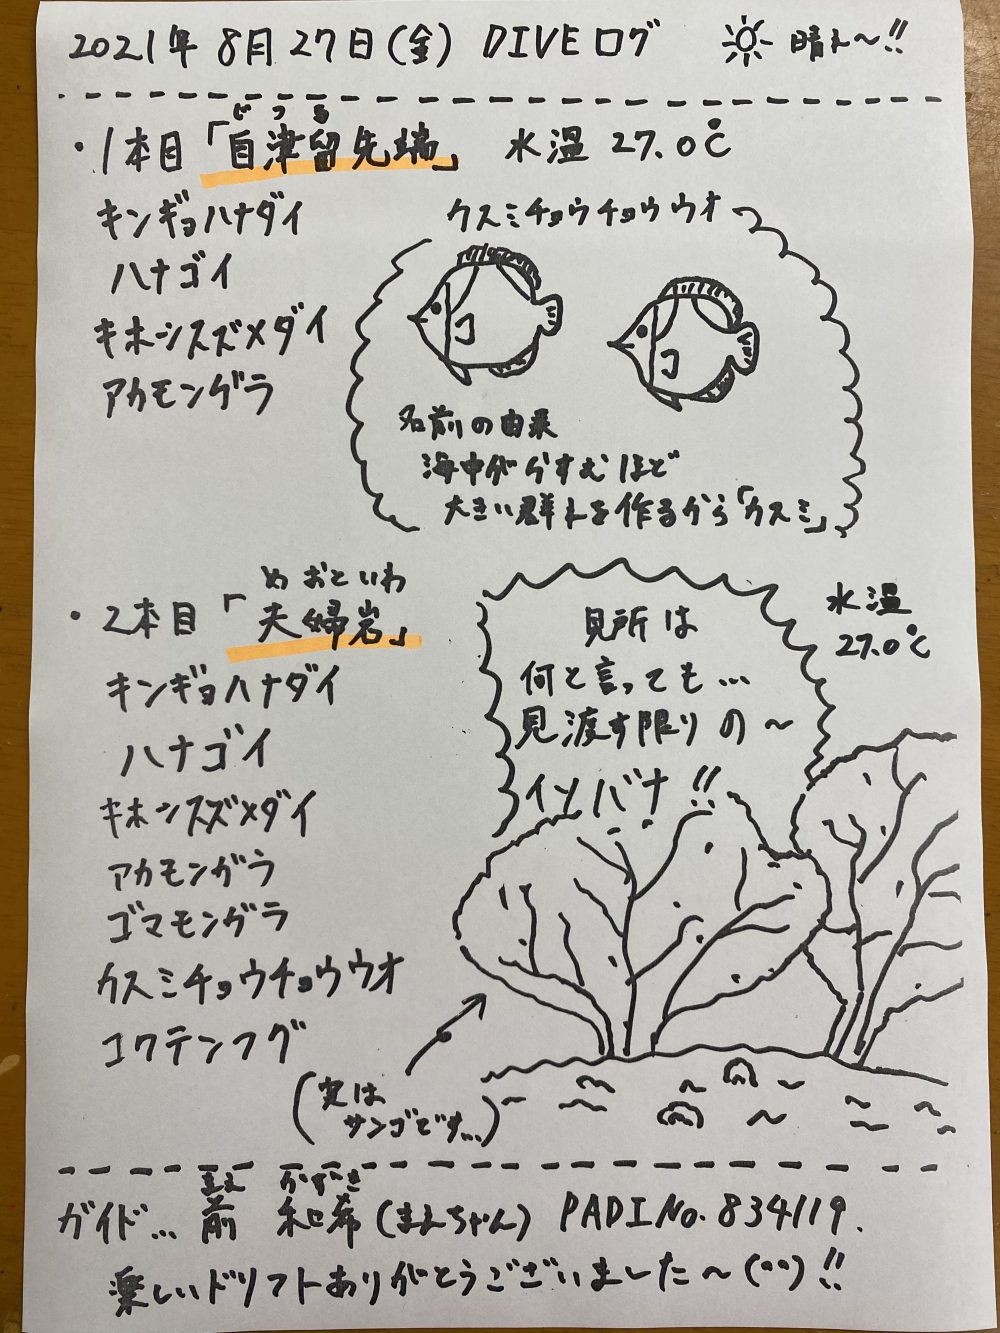 2021年 8月 27日(金) DIVEログ 晴れ〜!!
じつる
・1本目「自津留先端」 水温 27.0℃
キンギョハナダイ
ハナゴイ
キホシスズメダイ
アカモンガラ
カスミチョウチョウウオ
名前の由来
海中がかすむほど
大きい群れを作るから「カスミ」
めおといわ
・2本目「夫婦岩」
水温
27.0℃
キンギョハナダイ
ハナゴイ
キホシスズメダイ
アカモンガラ
ゴマモンガラ
カスミチョウチョウウオ
コクテンフグ
見所は
何と言っても…
見渡す限りの〜
イソバナ!!
(実は
サンゴです…)
まえ かずき
ガイド… 前 和希(まえちゃん) PADI No. 834119.
楽しいドリフトありがとうございました〜(^^)!!